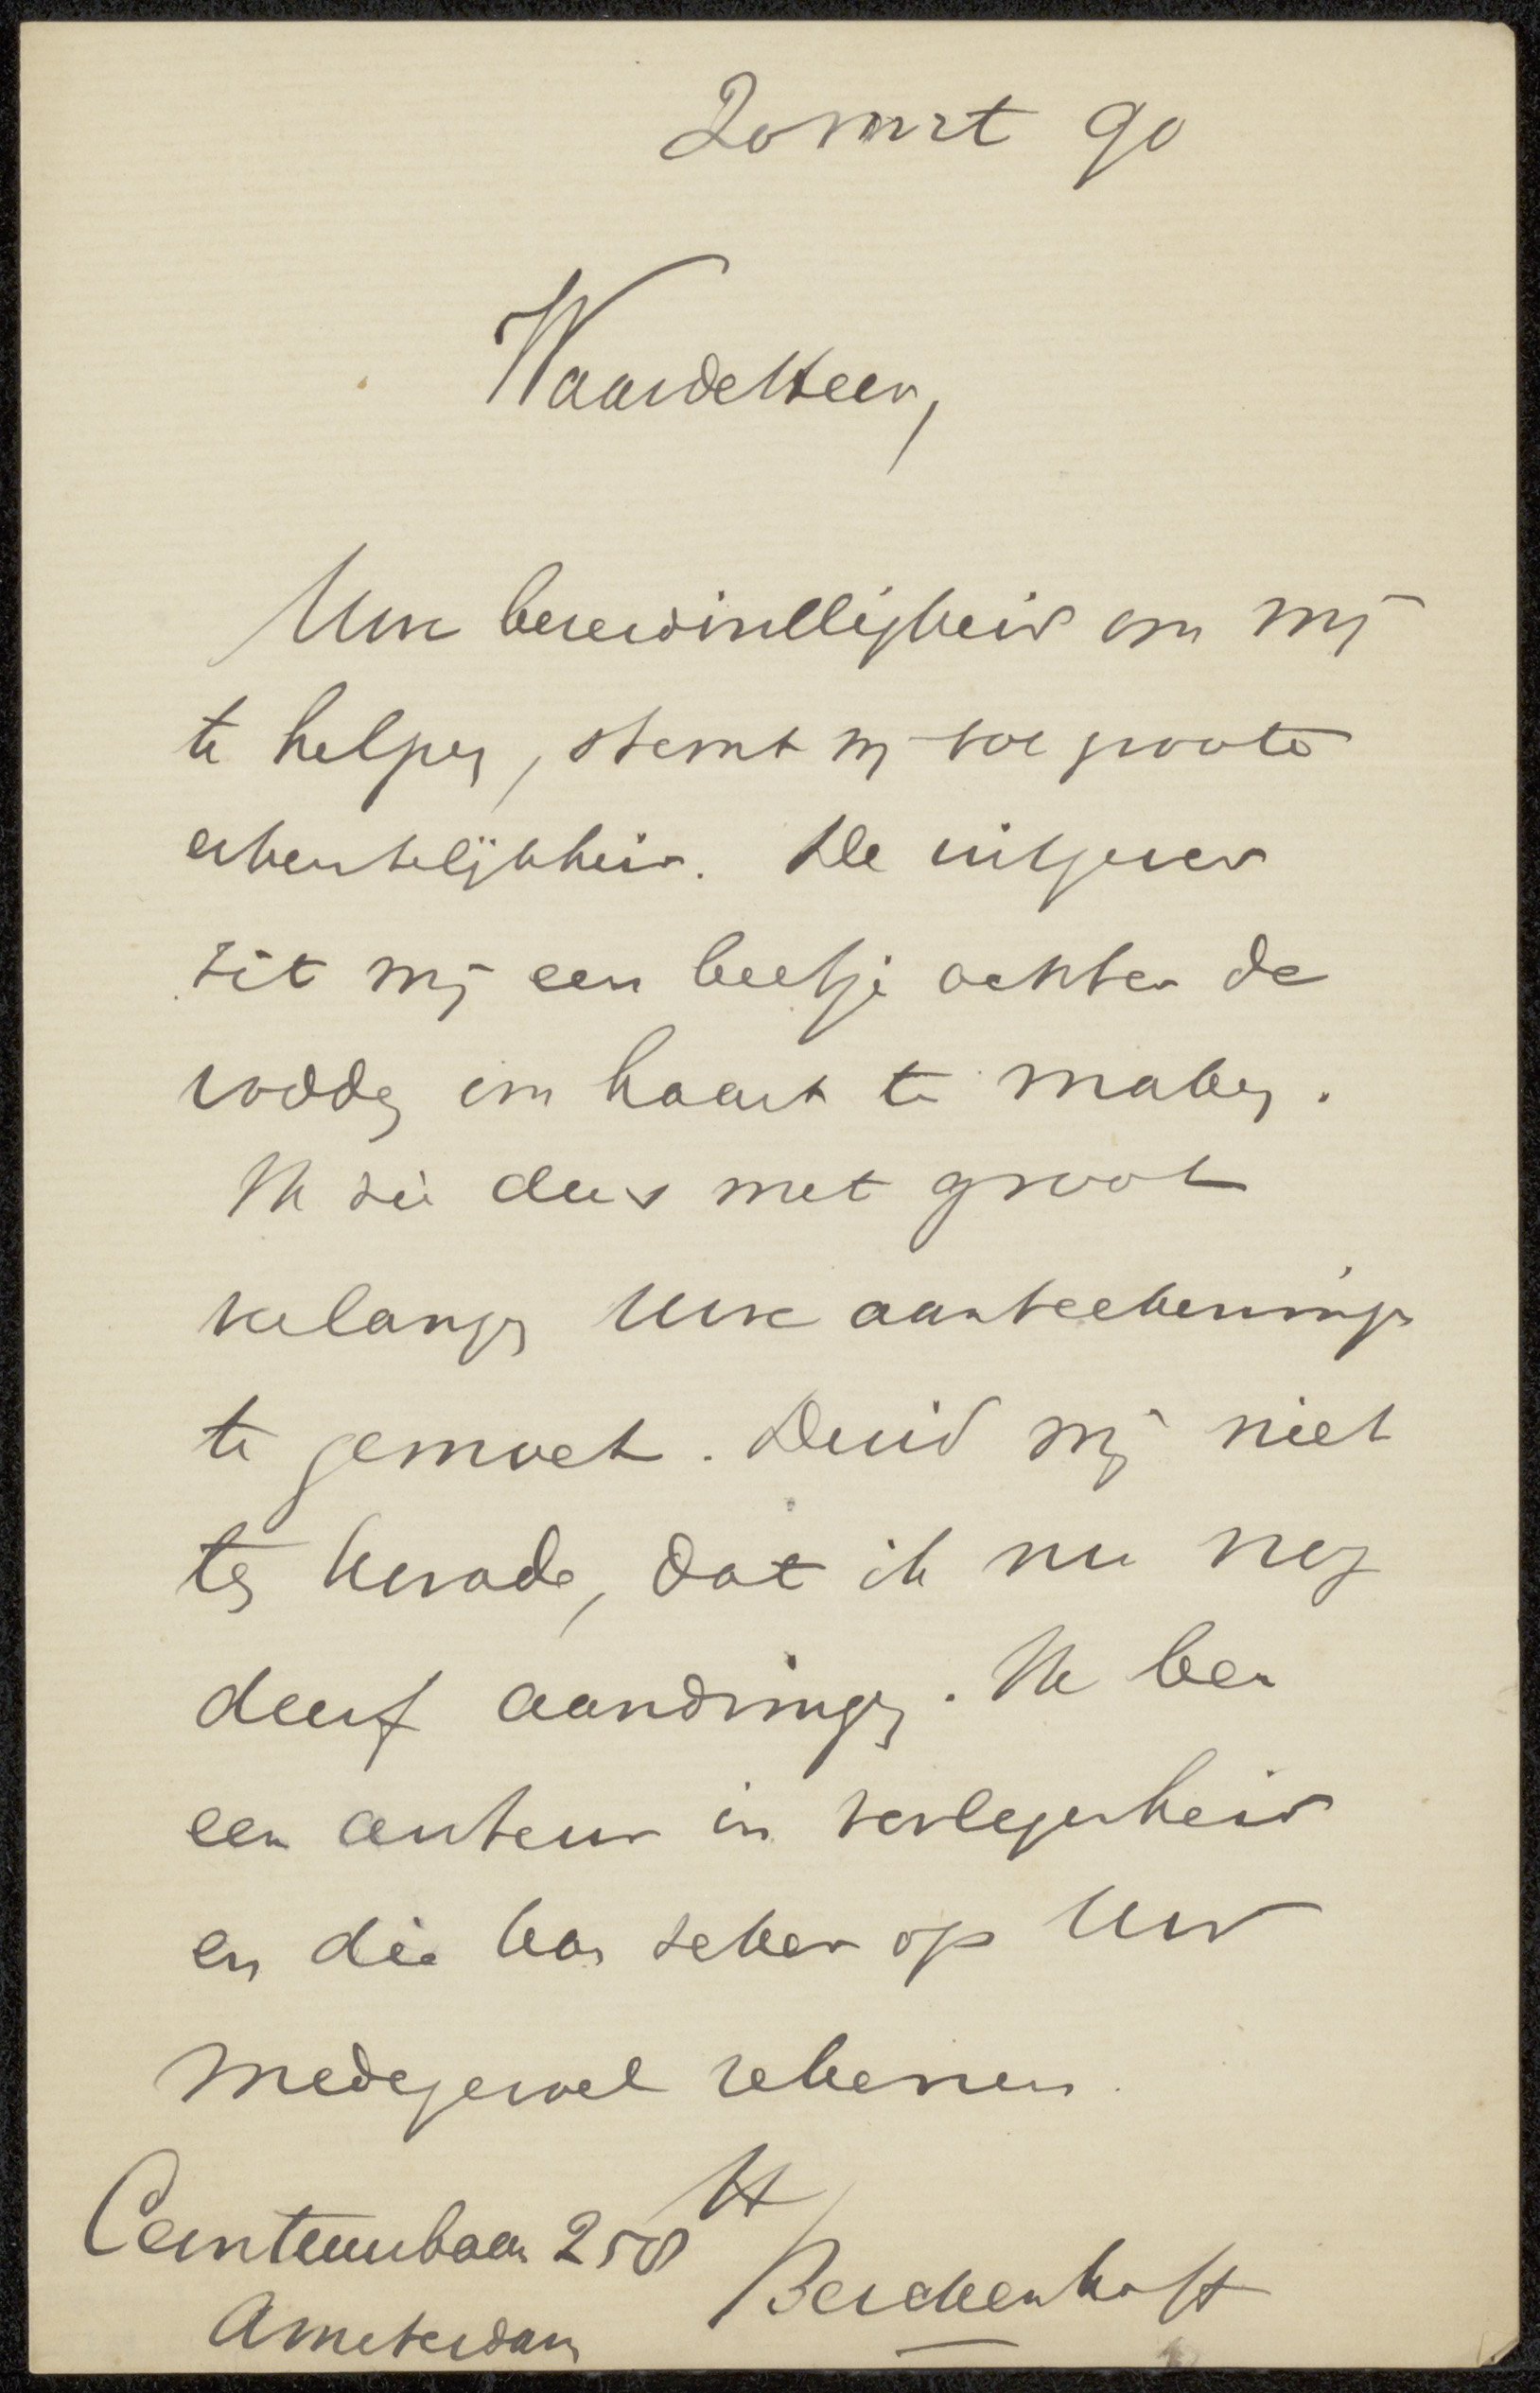 20 mrt 90
Waarde Heer,
Uwe bereidwilligheid om mij
te helpen, stemt mij tot groote
erkentelijkheid. De uitgever
zit mij een beetje achter de
vodden om haast te maken.
Ik zie dus met groot
verlangen Uwe aanteekeningen
te gemoet. Duid mij niet
ten kwade, dat ik nu nog
durf aandringen. Ik ben
een auteur in verlegenheid
en die kan zeker op Uw
medegevoel rekenen.
Ceintuurbaan 258
H Berckenhoff
Amsterdam